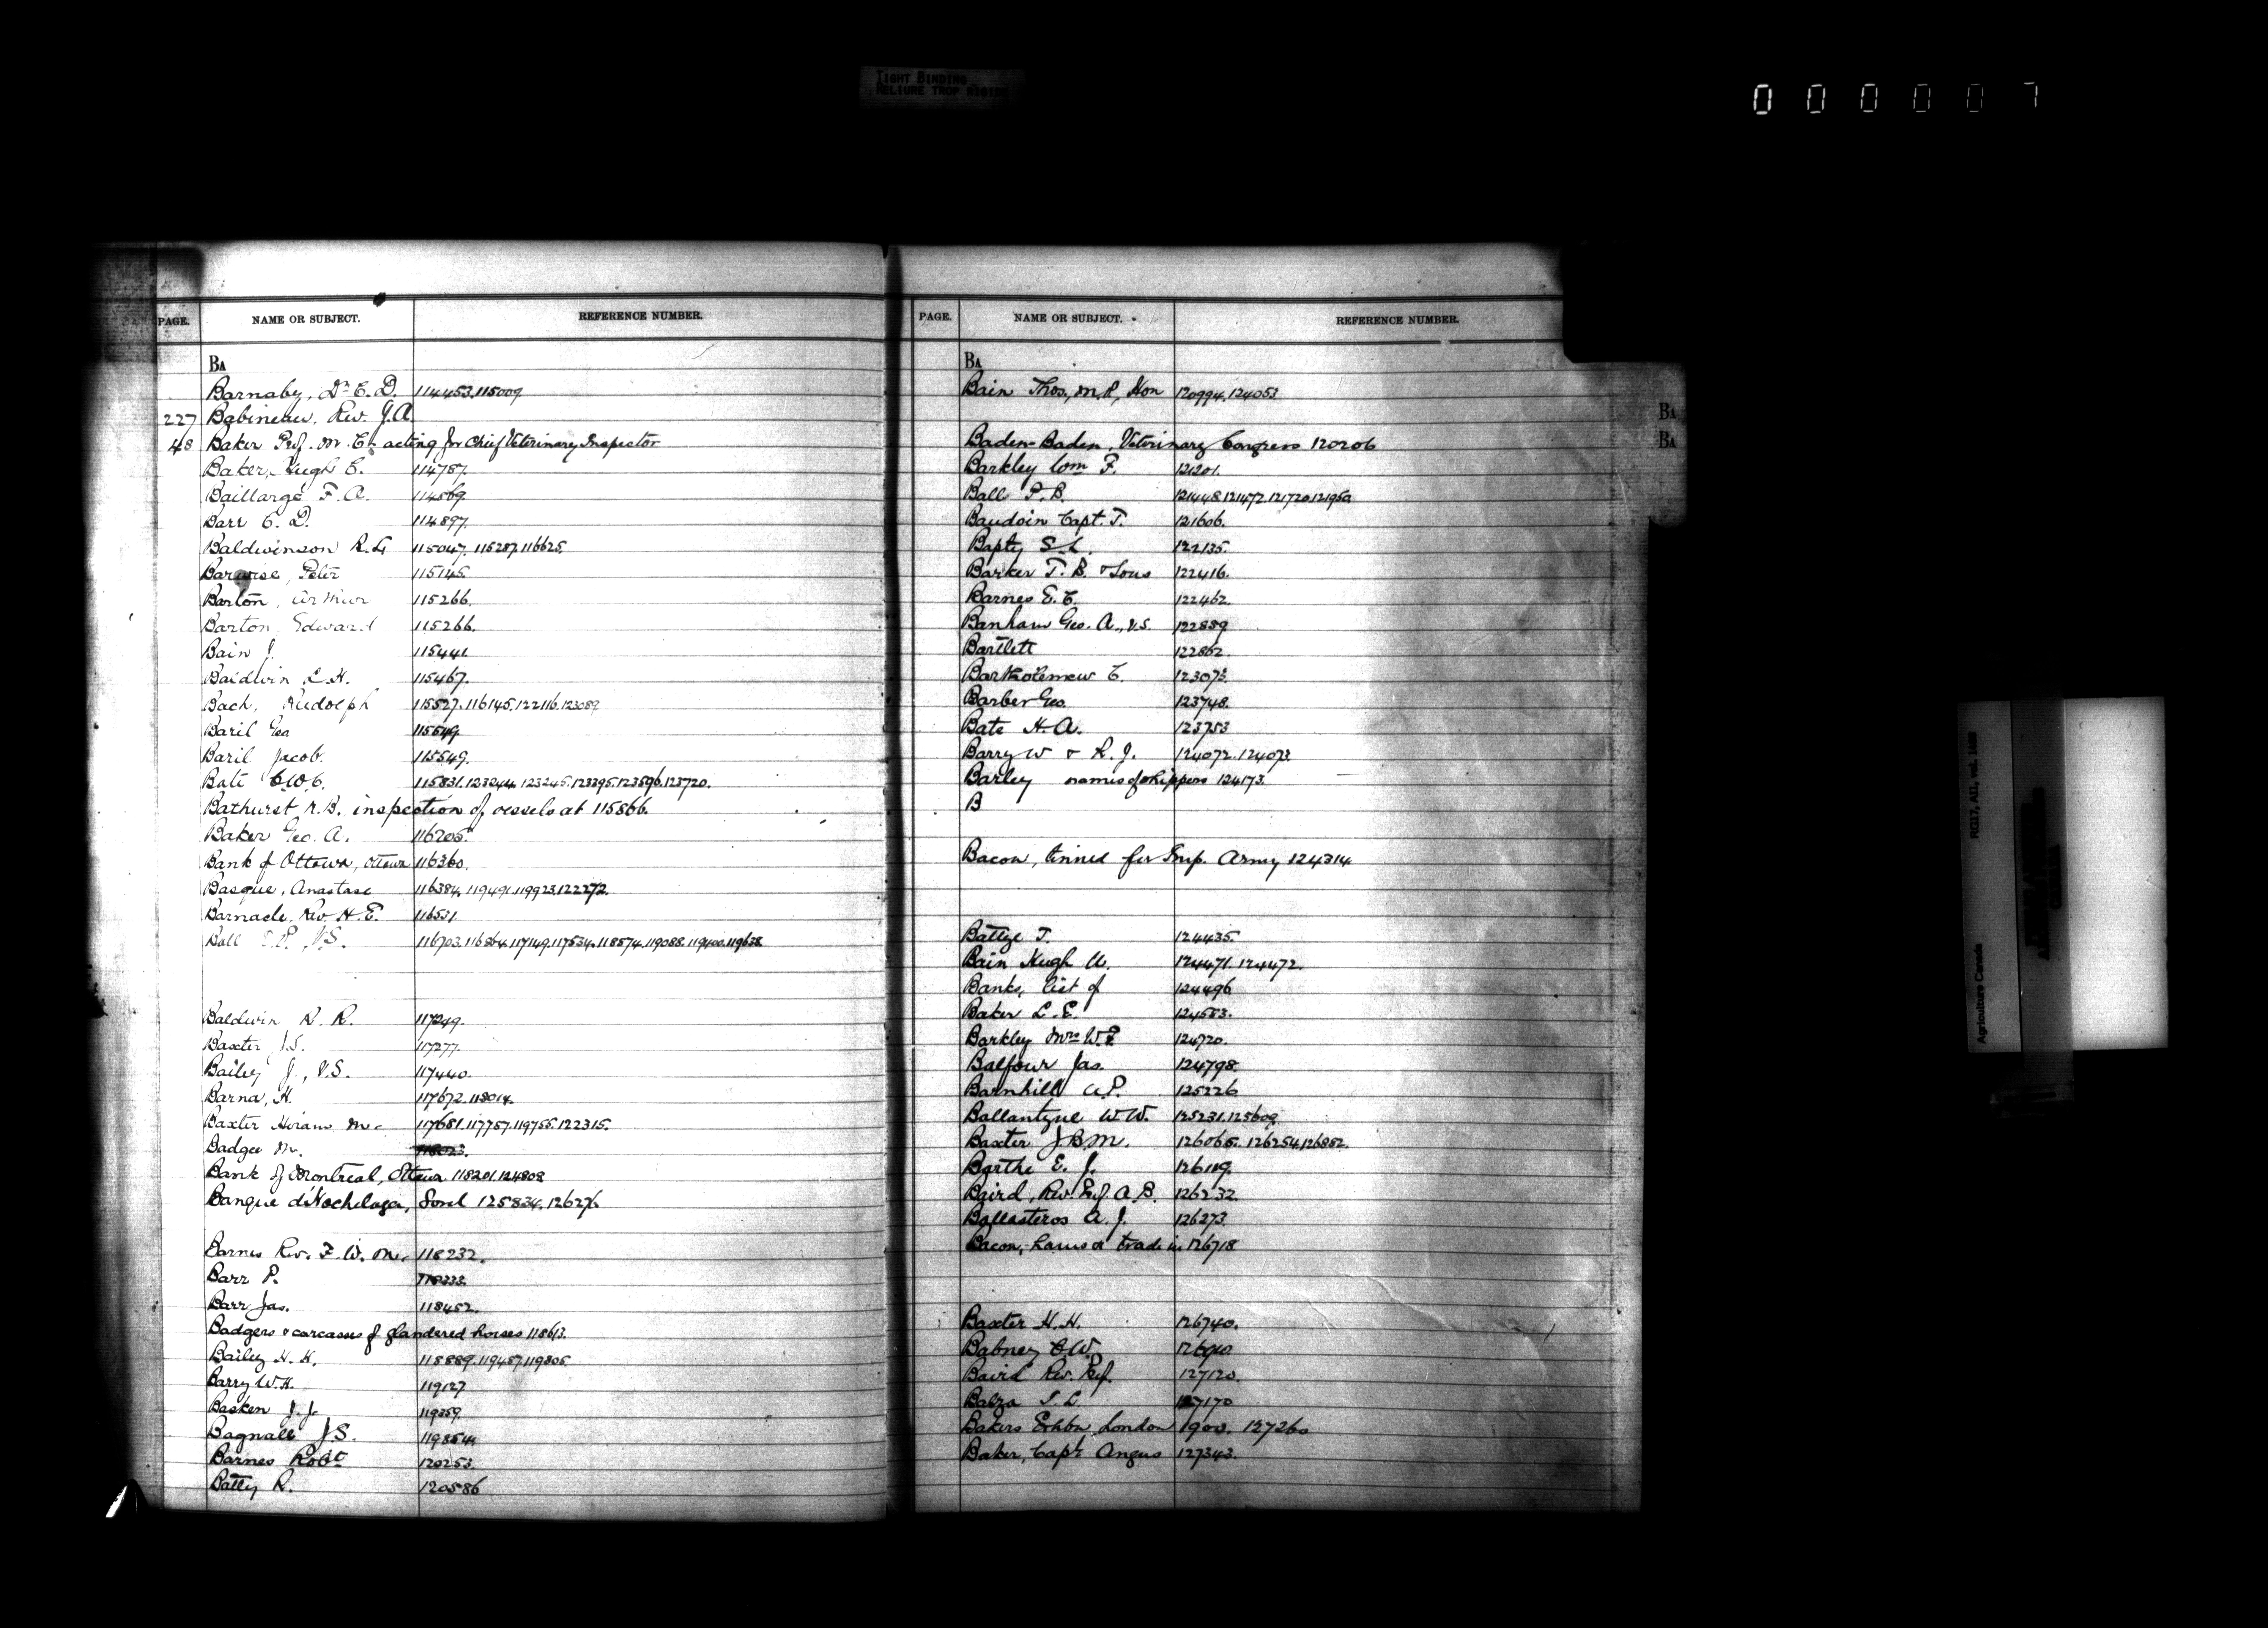 TIGHT BINDING
RELIURE TROP RIGIDE
000007
PAGE. NAME OR SUBJECT. REFERENCE NUMBER.
BA
Barnaby, Dr. E. D. 114453. 115009.
227 Babineau, Rev. J. A.
48 Baker Prof. M. C. acting for Chief Veterinary Inspector
Baker, Hugh C. 114787.
Baillargé F. A. 114869.
Barr C. D. 114897.
Baldwinson R. L. 115047. 115287. 116625.
Barwise, Peter 115145.
Barton, Arthur 115266.
Barton Edward 115266.
Bain J. 115441.
Baldwin L. H. 115467.
Bach, Rudolph 115527. 116145. 122116. 123089.
Baril Geo 115549.
Baril Jacob. 115549.
Bate C. W. C. 115831. 123244. 123245. 123395. 123596. 123720.
Bathurst N. B. inspection of vessels at 115866.
Baker Geo. A. 116205.
Bank of Ottawa, Ottawa 116360.
Basque, Anastase 116384. 119491. 119923. 122272.
Barnacle, Rev. H. E. 116531.
Ball V.S. 116703. 116864. 117149. 117534. 118574. 119088. 119400. 119638.
Baldwin R. R. 117249.
Baxter J. S. 117277.
Bailey J., V.S. 117440.
Barna, H. 117672. 118014.
Baxter Hiram Mc 117681. 117757. 119755. 122315.
Badger M. 118023.
Bank of Montreal, Ottawa 118201. 124808
Banque d'Hochelaga, Sorel 125834. 126276.
Barnes Rev. F. W. M. 118232.
Barr P. 118333.
Barr Jas. 118452.
Badgers & carcasses of glandered horses 118613.
Bailey H. K. 118889. 119457. 119805.
Barry W. H. 119127
Basken J. J. 119359.
Bagnall J. S. 119854.
Barnes Robt 120253.
Batty R. 120586
PAGE. NAME OR SUBJECT. REFERENCE NUMBER.
BA
Bain Thos., M.P., Hon 120994. 124053
Baden-Baden, Veterinary Congress 120206
Barkley Wm F. 121201.
Ball P. B. 121448. 121472. 121720. 121950
Baudoin Capt. J. 121606.
Bapty S. L. 122135.
Barker T. B. & Sons 122416.
Barnes E. C. 122462.
Banham Geo. A., V.S. 122889
Bartlett 122862.
Bartholemew C. 123073.
Barber Geo. 123748.
Bate H. A. 123753
Barry W & R. J. 124072. 124073.
Barley names of shippers 124173.
B
Bacon, tinned for Imp. Army 124314
Battye T. 124435.
Bain Hugh U. 124471. 124472.
Banks, list of 124496
Baker L. E. 124583.
Barkley Mrs W. F. 124720.
Balfour Jas. 124798.
Barnhill A. P. 125226
Ballantyne W. W. 125231. 125609.
Baxter J. B. M. 126065. 126254. 126882.
Barthe E. J. 126119.
Baird, Rev. Prof. A. B. 126232.
Ballasteros A. J. 126273.
Bacon, hams & trade in 126718
Baxter H. H. 126740.
Babney C. W. 126910
Baird Rev. Prof. 127120.
Balza 127170
Bakers Exhbn, London 1900. 127260
Baker, Capt Angus 127343.
BA
BA
RG17, AII, vol. 1488
Agriculture Canada